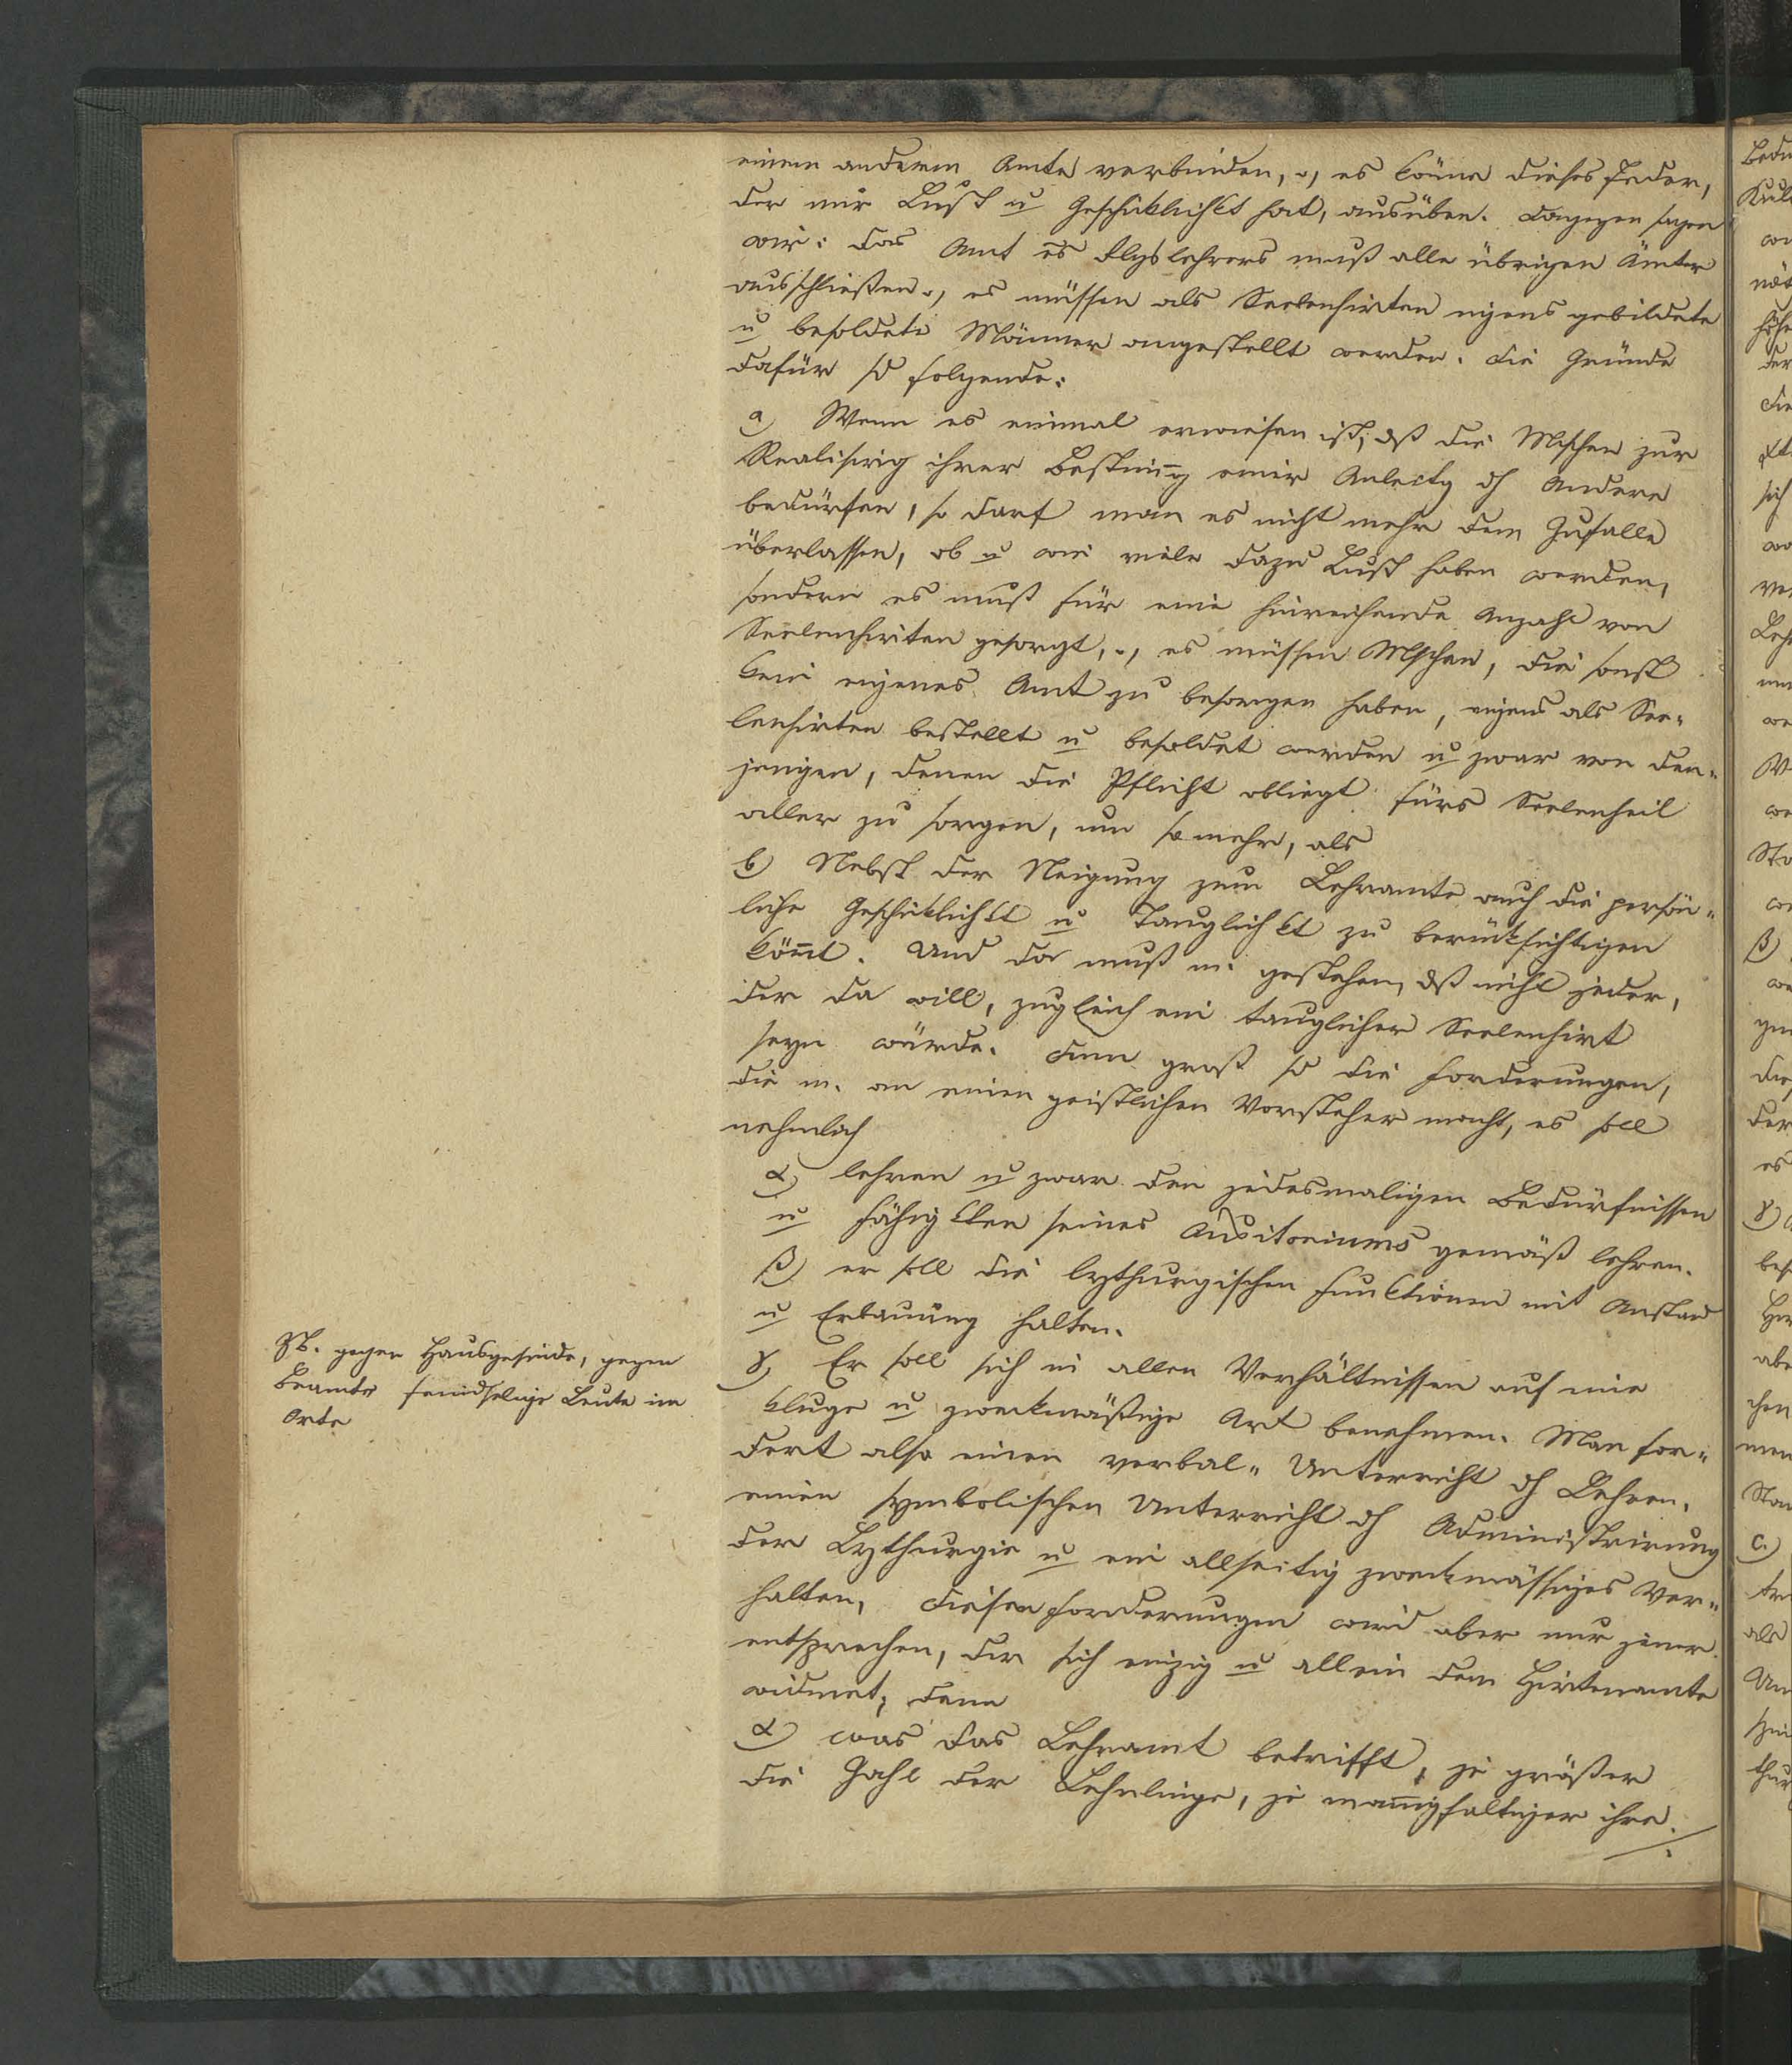 einem anderem Amte verbinden, es könne dieses Jeder,
der nur Lust u Geschiklichkt hat, ausüben. Dagegen sagen
wir: Das Amt es Rlgslehrers muß alle übrigen Ämter
ausschließen, es müssen als Seelenhirten eigens gebildete
u besoldete Männer angestellt werden. Die Gründe
dafür sd folgende:
a) Wenn es einmal erwiesen ist, dß die Mschen zur
Realisirg ihrer Bestimg einer Anleitg dh Andere
bedürfen, so darf man es nicht mehr dem Zufalle
überlassen, ob u wie viele dazu Lust haben werden,
sondern es muß für eine hinreichende Anzahl von
Seelenhirten gesorgt, es müssen Mschen, die sonst
kein eigenes Amt zu besorgen haben, eigens als See-
lenhirten bestellt u besoldet werden u zwar von den-
jenigen, denen die Pflicht obliegt fürs Seelenheil
aller zu sorgen, um so mehr, als
b) Nebst der Neigung zum Lehramte auch die persön-
liche Geschiklichkt u Tauglichkt zu berüksichtigen
kömt. Und da muß m. gestehen, dß nicht jeder,
der da will, zugleich ein tauglicher Seelenhirt
seyn würde. Denn groß sd die Forderungen,
die m. an einen geistlichen Vorsteher macht, es soll
nehmlich
α) lehren u zwar den jedesmaligen Bedürfnissen
u Fähigkten seines Auditoriums gemäß lehren.
β) er soll die lythurgischen Funktionen mit Anstand
u Erbauung halten.
γ) Er soll sich in allen Verhältnissen auf eine
kluge u zwekmäßige Art benehmen. Man for-
dert also einen verbal-Unterricht dh Lehren,
einen symbolischen Unterricht dh Administrirung
der Lythurgie u ein allseitig zwekmässiges Ver-
halten, diesen Forderungen wird aber nur jener
entsprechen, der sich einzig u allein dem Hirtenamte
widmet; denn
α) was das Lehramt betrifft, je größer
die Zahl der Lehrlinge, je manigfaltiger ihre
zB. gegen Hausgesinde, gegen
Beamte feindselige Leute im
Orte